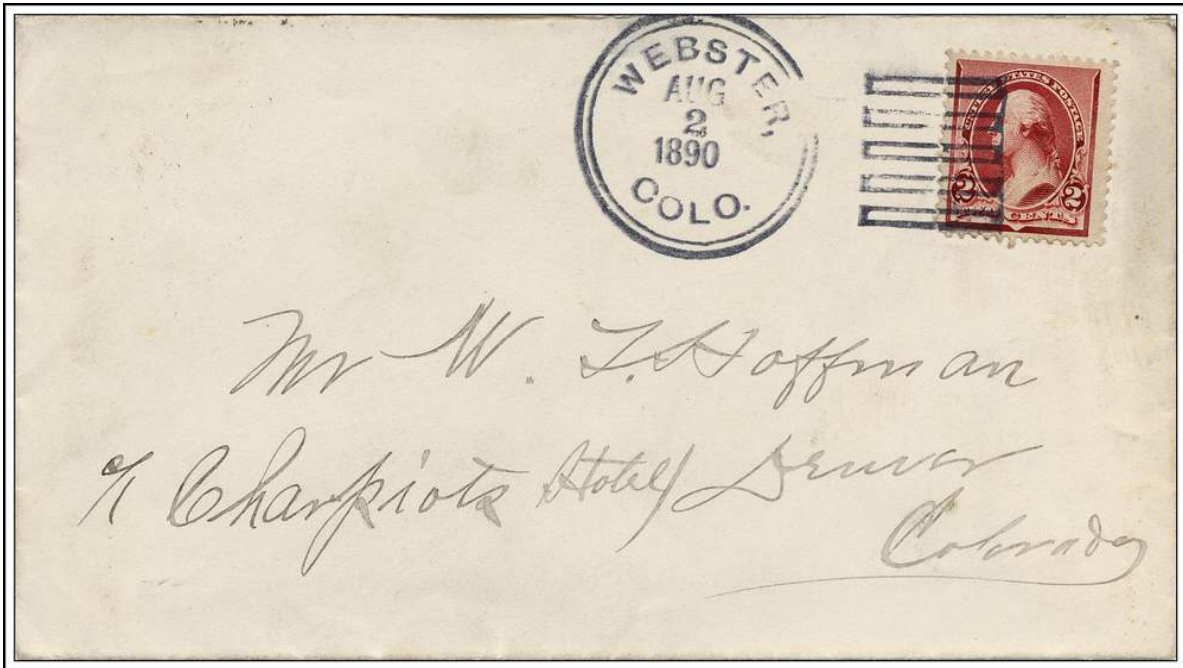 WEBSTER,
AUG
2
1890
COLO.
UNITED STATES POSTAGE
2 2
CENTS
Mr W. T. Hoffman
c/o Charpiots Hotel Denver
Colorado